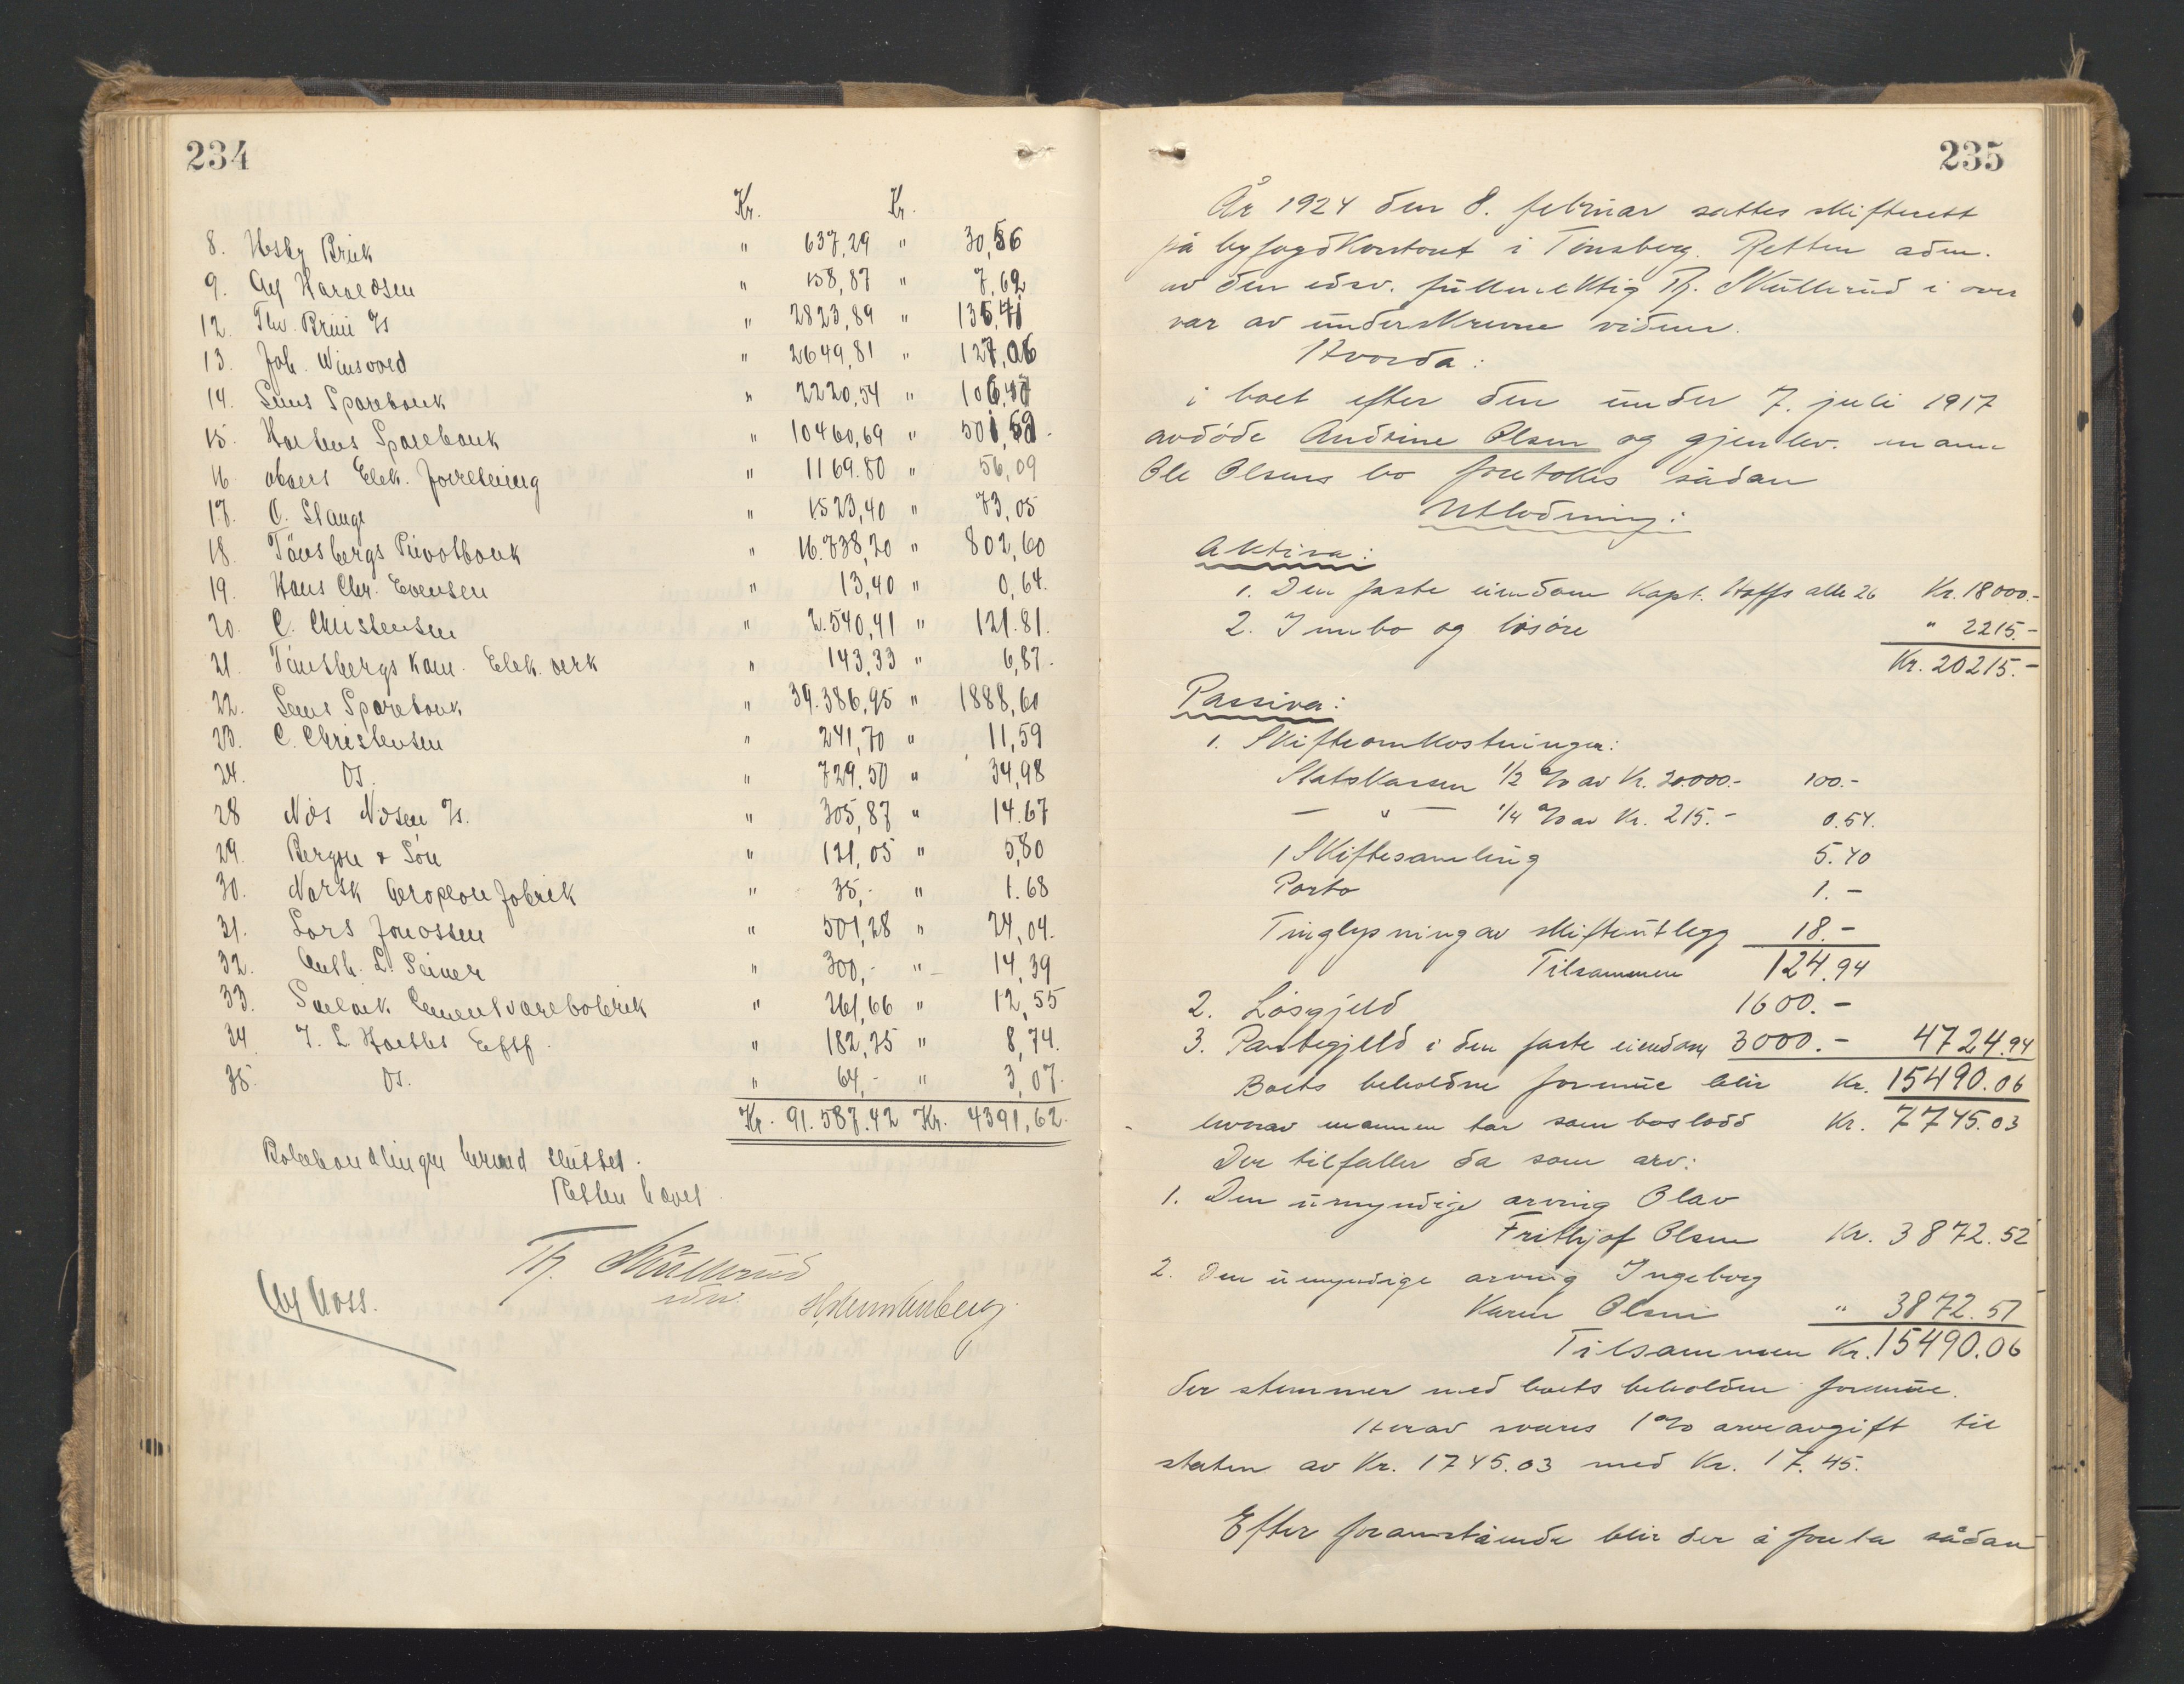 234
Kr. Kr.
8. Husby Bruk " 637,29 " 30,56
9. Aug Haraldsen " 158,87 " 7,62
12. Thv. Bruu " 2823,89 " 135,41
13. Joh. Winsvold " 2649,81 " 127,06
14. Sems Sparebank " 2220,54 " 106,47
15. Sparebank " 10460,69 " 501,59.
16. Elek. Forretning " 1169.80 " 56,09
17. O. Stange " 1523,40 " 73,05
18. Tönsbergs Privatbank " 16.738,20 " 802,60
19. Hans Chr. Evensen " 13,40 " 0,64.
20. C. Christensen " 2.540,41 " 121.81.
21. Tönsbergs Kom. Elek. verk " 143,33 " 6,87.
22. Sems Sparebank " 39.386,95 " 1888,60
23. C. Christensen " 241,70 " 11,59
24. Ds. " 729,50 " " 34,98
28 305,87 " 14.67
29. & Sön " 121,05 " 5,80
30. Norsk Aeroplanfabrik " 35,- " 1.68
31. Lars Jonassen " 501,28 " 24,04.
32. Anth. L. " 300,- " 14,39
33. Cementvarefabrik " 261,66 " 12,55
34. Eftf. " 182,25 " 8,74.
35. Ds. " 64,- " 3,07.
Kr. 91.587.42 Kr. 4391,62.
Bobehandlingen herved sluttet.
Retten hævet.
Th. Müllerud
edsv.
235
År 1924 den 8. februar sattes skifterett
på byfogdkontoret i Tönsberg. Retten adm.
av den edsv. fullmektig Th. Müllerud i over
vær av underskrevne vidner.
Hvorda:
i boet efter den under 7. juli 1917
avdöde Andrine Olsen og gjenlev. mann
Ole Olsens bo foretokes sådan
Utlodning:
Aktiva:
1. Den faste eiendom Kapt. Hoffs alle 26 Kr. 18000.-
2. Innbo og lösöre " 2215.-
Kr. 20215.-
Passiva:
1. Skifteomkostninger:
Statskassen 1/2 % av Kr. 20.000.- 100.-
— " — 1/4 % av Kr. 215.- 0.54.
1 Skiftesamling 5.40
Porto 1.-
Tinglysning av skifteutlegg 18.-
Tilsammen 124.94
2. Lösgjeld 1600.-
3. Pantegjeld i den faste eiendom 3000.- 4724.94
Boets beholdne formue blir Kr. 15490.06
hvorav mannen tar som boslodd Kr. 7745.03
Der tilfaller da som arv:
1. Den umyndige arving Olav
Frithjof Olsen Kr. 3872.52
2. Den umyndige arving Ingeborg
Karin Olsen " 3872.51
Tilsammen Kr. 15490.06
der stemmer med boets beholdne formue.
Herav svares 1% arveavgift til
staten av Kr. 1745.03 med Kr. 17.45.
Efter foranstående blir der å foreta sådan